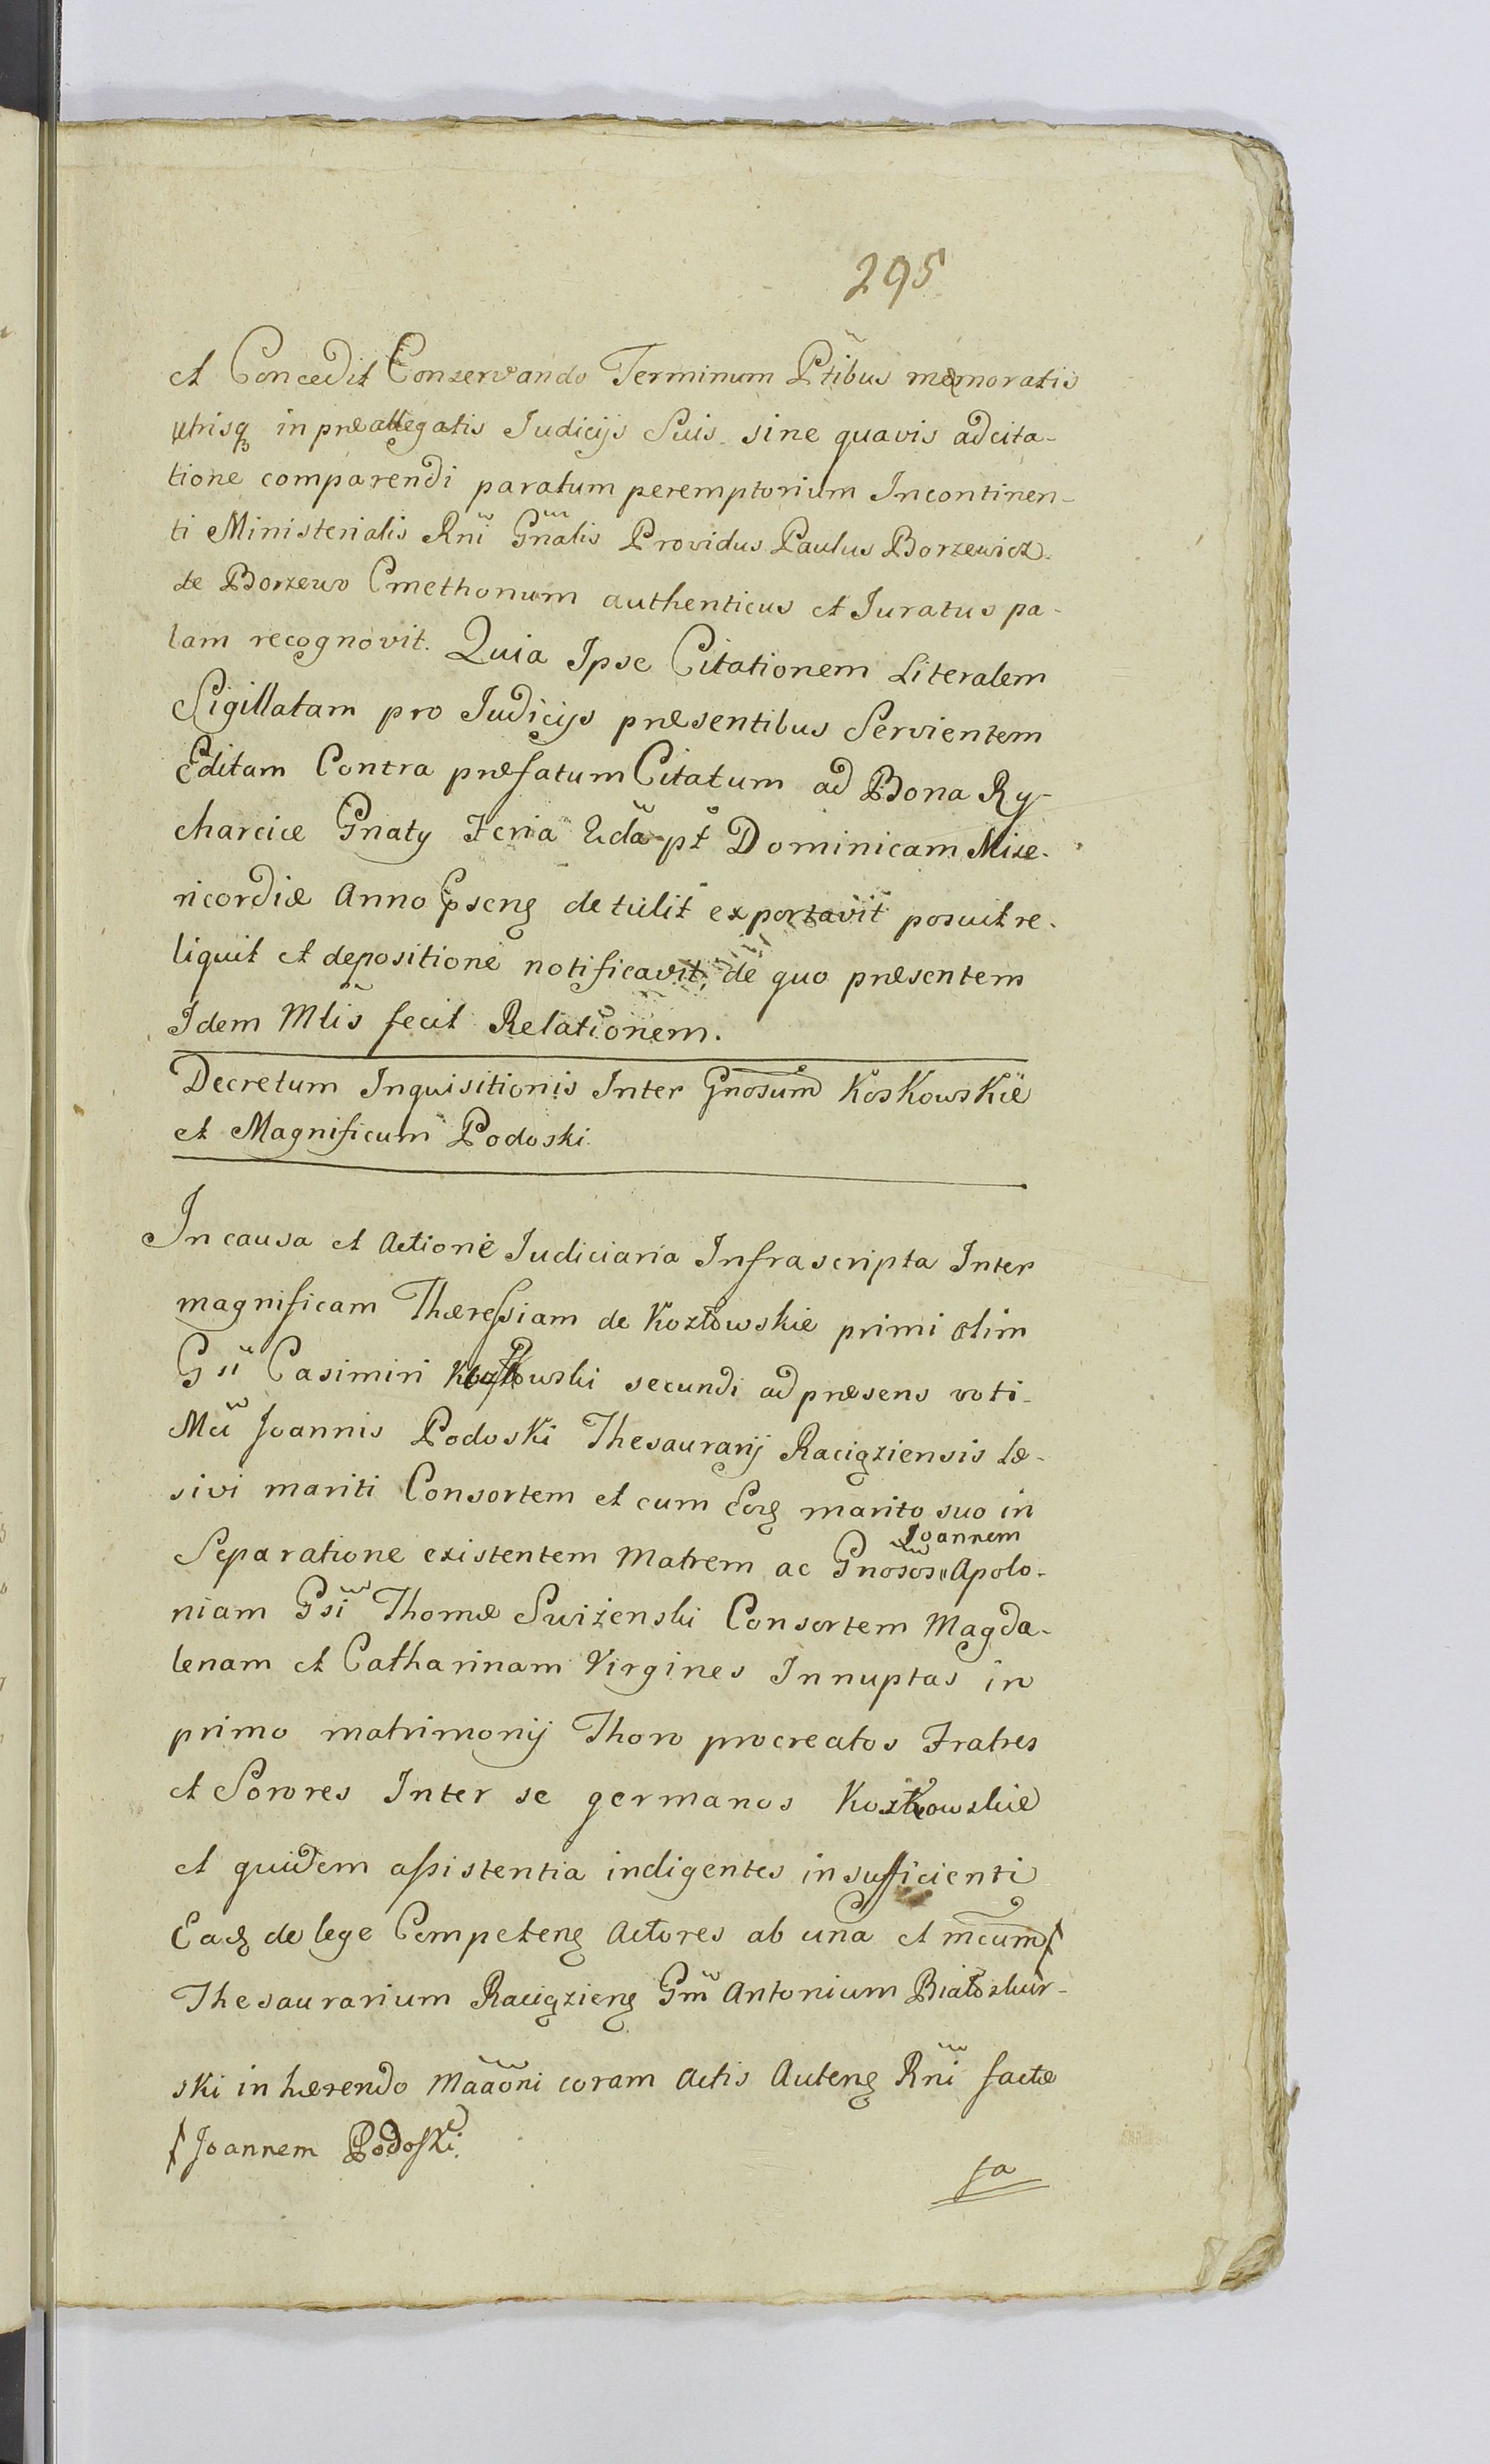 295
et Concedit Conservando Terminum Ptibus memoratis
utrisq in præallegatis Iudicijs Suis sine quavis adcita-
tione comparendi paratum peremptorium Incontinen-
ti Ministerialis Rni Gnalis Providus Paulus Borzewicz
de Borzewo Cmethonum authenticus et Iuratus pa-
lam recognovit. Quia Ipse Citationem Literalem
Sigillatam pro Iudicijs præsentibus Servientem
Editam Contra præfatum Citatum ad Bona Ry-
charcice Gnaty Feria 2da pt Dominicam Mise-
ricordiæ Anno pseng detulit exportavit posuit re-
liquit et depositione notificavit, de quo præsentem
Idem Mlis fecit Relationem.
Decretum Inquisitionis Inter Gnosum Koskowskie
et Magnificum Podoski
In causa et Actione Iudiciaria Infrascripta Inter
magnificam Thæressiam de Kozłowskie primi olim
Gsi Casimiri secundi ad præsens voti
Mci Joannis Podoski Thesaurarij Raciąziensis Læ-
sivi mariti Consortem et cum Eog marito suo in
Separatione existentem Matrem ac Gnosos Joannem Apolo-
niam Gsi Thomæ Swiżenski Consortem Magda-
lenam et Catharinam Virgines Innuptas in
primo matrimonij Thoro procreatos Fratres
et Sorores Inter se germanos Koskowskie
et quidem assistentia indigentes in sufficienti
Eag de lege Competeng Actores ab una et mcum
Thesaurarium Raciązieng Gm Antonium Białoskur-
ski in hærendo Maaoni coram Actis Auteng Rni factæ
Joannem Podoski.
ta